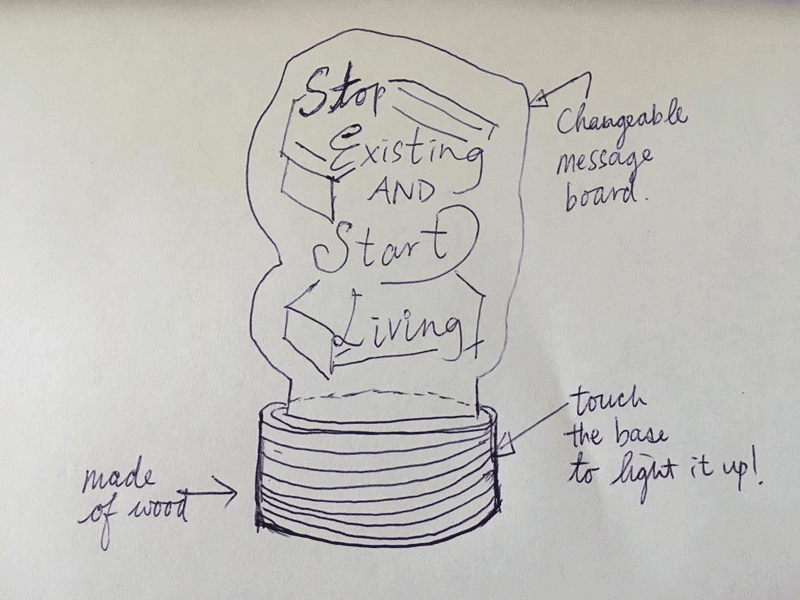 Stop
Existing
AND
Start
Living
Changeable
message
board.
touch
the base
to light it up!
made
of wood